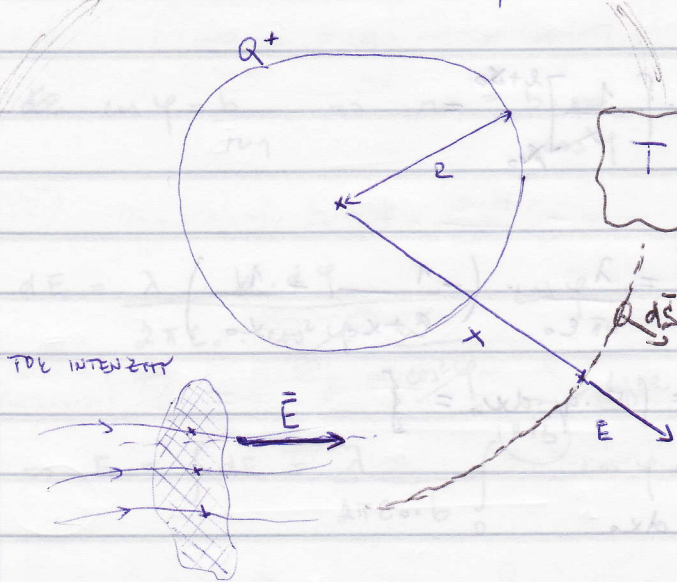 Q⁺
T
R
dS̄
x
TOK INTENZITY
Ē
E